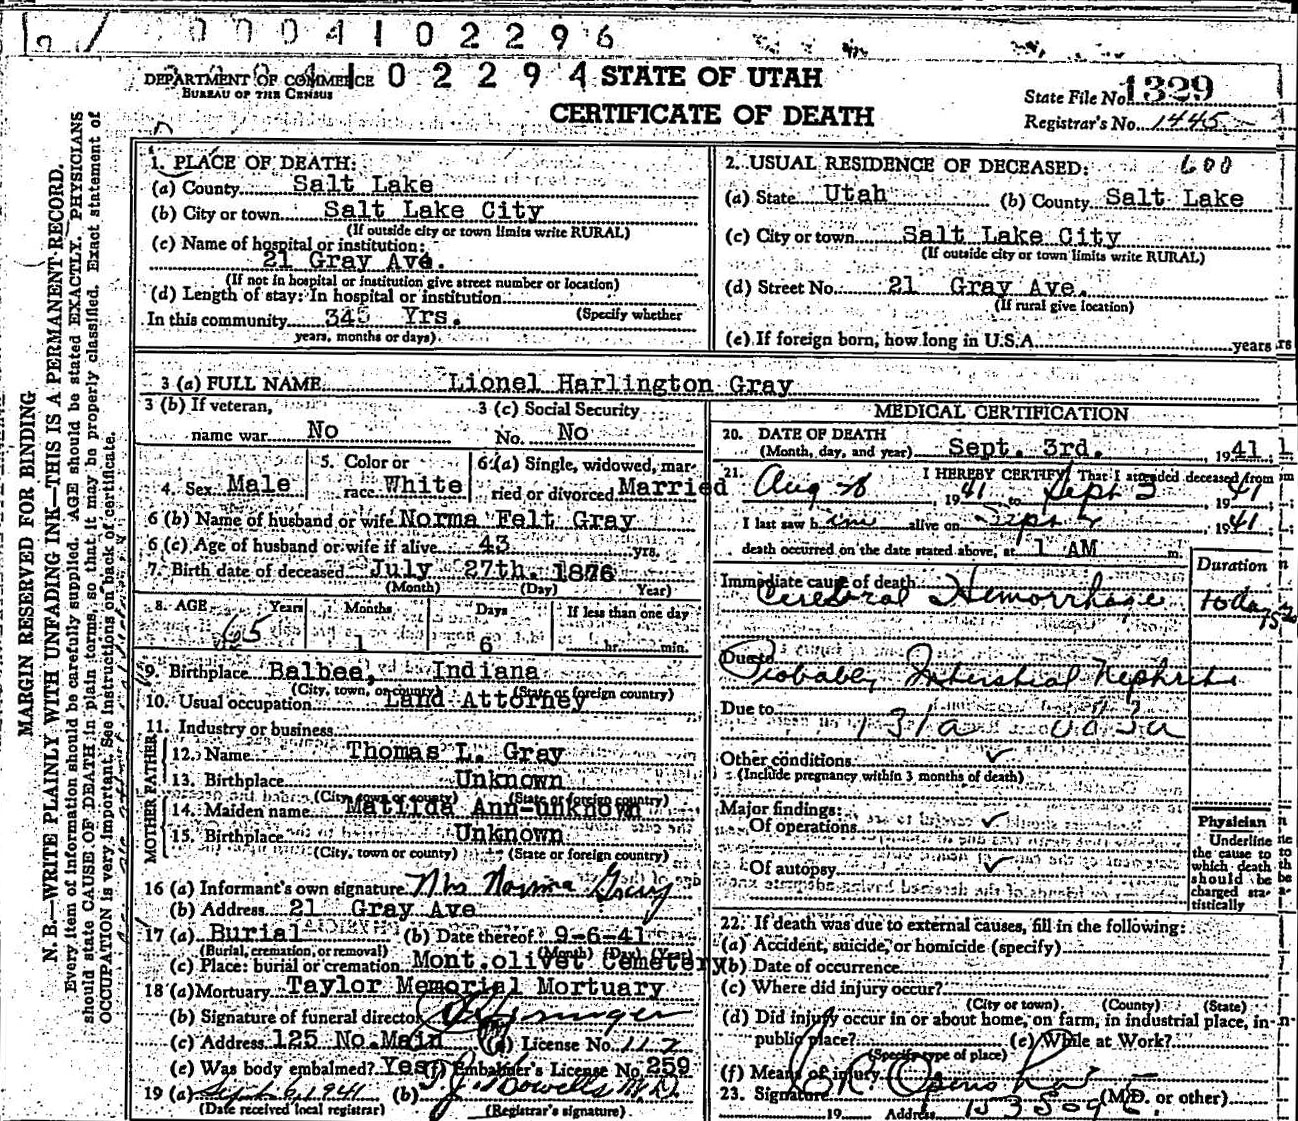 0004102296
DEPARTMENT OF COMMERCE 02294 STATE OF UTAH
BUREAU OF THE CENSUS
CERTIFICATE OF DEATH
State File No. 1329
Registrar's No. 1445
MARGIN RESERVED FOR BINDING
N. B.—WRITE PLAINLY WITH UNFADING INK—THIS IS A PERMANENT RECORD.
Every item of information should be carefully supplied. AGE should be stated EXACTLY. PHYSICIANS
should state CAUSE OF DEATH in plain terms, so that it may be properly classified. Exact statement of
OCCUPATION is very important. See instructions on back of certificate.
1. PLACE OF DEATH:
(a) County Salt Lake
(b) City or town Salt Lake City
(If outside city or town limits write RURAL)
(c) Name of hospital or institution:
21 Gray Ave.
(If not in hospital or institution give street number or location)
(d) Length of stay: In hospital or institution
(Specify whether
In this community Yrs.
years, months or days)
2. USUAL RESIDENCE OF DECEASED: 600
(a) State Utah (b) County Salt Lake
(c) City or town Salt Lake City
(If outside city or town limits write RURAL)
(d) Street No. 21 Gray Ave.
(If rural give location)
(e) If foreign born, how long in U.S.A. years
3 (a) FULL NAME Lionel Harlington Gray
3 (b) If veteran, name war No
3 (c) Social Security No. No
4. Sex Male
5. Color or race White
6 (a) Single, widowed, married or divorced Married
6 (b) Name of husband or wife Norma Felt Gray
6 (c) Age of husband or wife if alive 43 yrs.
7. Birth date of deceased July 27th. 1876
(Month) (Day) Year)
8. AGE Years Months Days If less than one day
65 1 6 hr. min.
9. Birthplace Balbee, Indiana
(City, town, or county) (State or foreign country)
10. Usual occupation Land Attorney
11. Industry or business
FATHER
12. Name Thomas L. Gray
13. Birthplace Unknown
(City, town or county) (State or foreign country)
MOTHER
14. Maiden name Matilda Ann-unknown
15. Birthplace Unknown
(City, town or county) (State or foreign country)
16 (a) Informant's own signature Mrs Norma Gray
(b) Address 21 Gray Ave
17 (a) Burial (b) Date thereof 9-6-41
(Burial, cremation, or removal) (Month) (Day) (Year)
(c) Place: burial or cremation Mont.olivet Cemetery
18 (a) Mortuary Taylor Memorial Mortuary
(b) Signature of funeral director
(c) Address 125 No.Main (d) License No. 117
(e) Was body embalmed? Yes (f) Embalmer's License No. 259
19 (a) Sept 6, 1941 (b) M.D.
(Date received local registrar) (Registrar's signature)
MEDICAL CERTIFICATION
20. DATE OF DEATH
(Month, day, and year) Sept. 3rd. , 1941
21. I HEREBY CERTIFY, That I attended deceased from
Aug 28 , 1941 to Sept 3 , 1941
I last saw him alive on Sept , 1941
death occurred on the date stated above, at 1 AM m.
Duration
Immediate cause of death
Cerebral Hemorrhage 10 days
Due to
Probably Interstitial Nephritis
Due to
131a
Other conditions
(Include pregnancy within 3 months of death)
Major findings:
Of operations
Of autopsy
Physician
Underline
the cause to
which death
should be
charged sta-
tistically
22. If death was due to external causes, fill in the following:
(a) Accident, suicide, or homicide (specify)
(b) Date of occurrence
(c) Where did injury occur?
(City or town) (County) (State)
(d) Did injury occur in or about home, on farm, in industrial place, in
public place? (e) While at Work?
(Specify type of place)
(f) Means of injury
23. Signature (M.D. or other)
19 Address